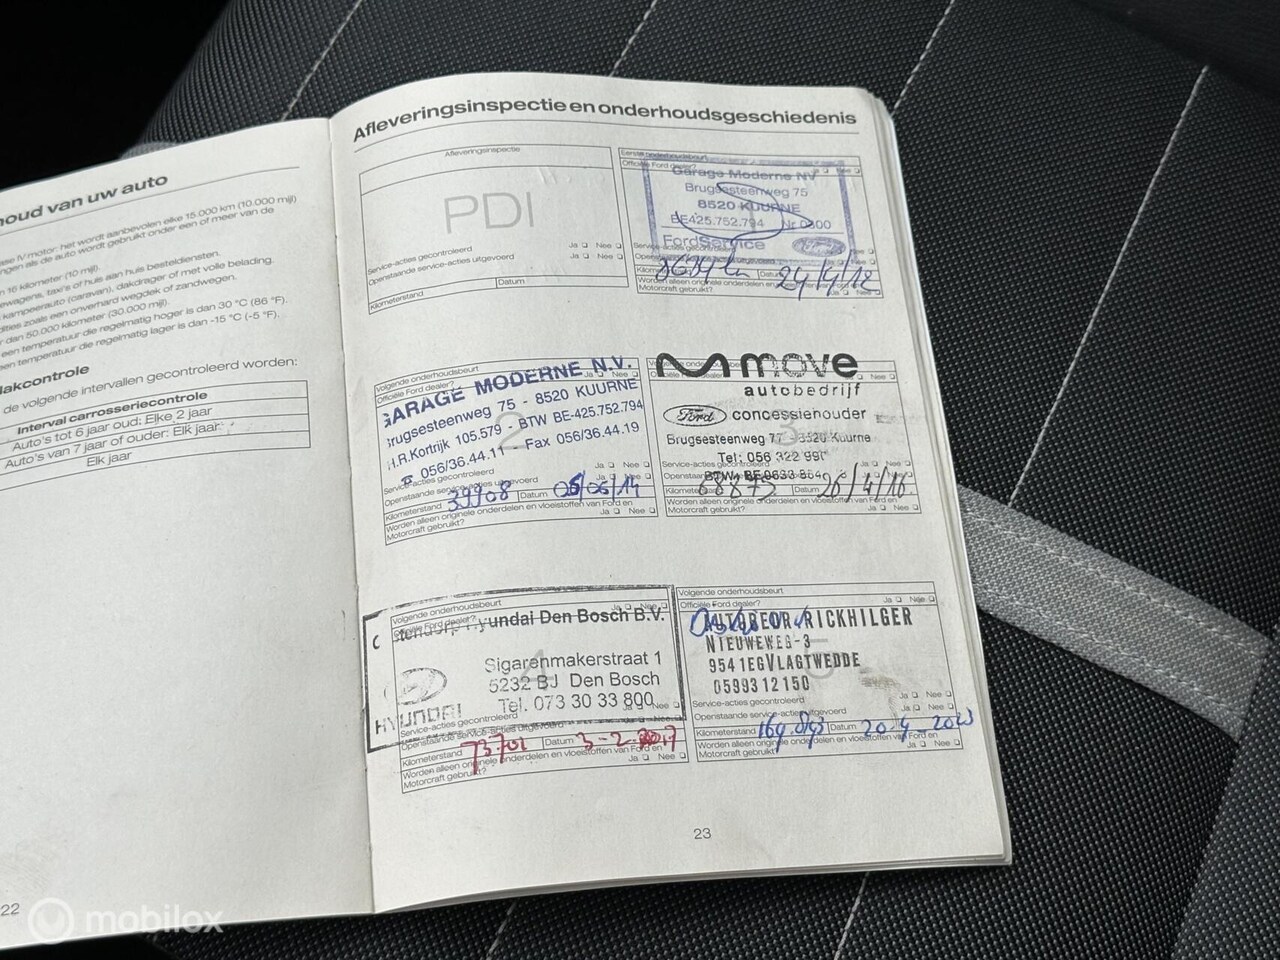 houd van uw auto
ase IV motor: het wordt aanbevolen elke 15.000 km (10.000 mijl)
ngen als de auto wordt gebruikt onder een of meer van de
n 16 kilometer (10 mijl).
ewagens, taxi's of huis aan huis besteldiensten.
kampeerauto (caravan), dakdrager of met volle belading.
dities zoals een onverhard wegdek of zandwegen.
r dan 50.000 kilometer (30.000 mijl).
een temperatuur die regelmatig hoger is dan 30 °C (86 °F).
een temperatuur die regelmatig lager is dan -15 °C (-5 °F).
lakcontrole
de volgende intervallen gecontroleerd worden:
Interval carrosseriecontrole
Auto's tot 6 jaar oud: Elke 2 jaar
Auto's van 7 jaar of ouder: Elk jaar
Elk jaar
22
Afleveringsinspectie en onderhoudsgeschiedenis
Afleveringsinspectie
PDI
Service-acties gecontroleerd Ja Nee
Openstaande service-acties uitgevoerd Ja Nee
Kilometerstand Datum
Eerste onderhoudsbeurt
Officiële Ford dealer? Ja Nee
Garage Moderne NV
Brugsesteenweg 75
8520 KUURNE
BE425.752.794 Nr 0300
FordService Ford
Service-acties gecontroleerd
Kilom Datum 24/4/12
Worden alleen originele onderdelen en
Motorcraft gebruikt? Ja Nee
Volgende onderhoudsbeurt
Officiële Ford dealer? Ja Nee
GARAGE MODERNE N.V.
Brugsesteenweg 75 - 8520 KUURNE
H.R.Kortrijk 105.579 - BTW BE-425.752.794
056/36.44.11 - Fax 056/36.44.19
2
Service-acties gecontroleerd Ja Nee
Openstaande service-acties uitgevoerd Ja Nee
Kilometerstand 39908 Datum 05/06/14
Worden alleen originele onderdelen en vloeistoffen van Ford en
Motorcraft gebruikt? Ja Nee
move
autobedrijf
Ford concessiehouder
3
Brugsesteenweg 77 - 8520 Kuurne
Tel: 056 322 990
Service-acties gecontroleerd Ja Nee
BTW: BE 0633 864
Openstaande Ja Nee
Kilometerstand 68873 Datum 26/4/16
Worden alleen originele onderdelen en vloeistoffen van Ford en
Motorcraft gebruikt? Ja Nee
Volgende onderhoudsbeurt
Officiële Ford dealer? Ja Nee
Hyundai Den Bosch B.V.
4
Sigarenmakerstraat 1
5232 BJ Den Bosch
Tel. 073 30 33 800
HYUNDAI
Service-acties gecontroleerd Nee
Openstaande service-acties uitgevoerd Ja Nee
Kilometerstand 73701 Datum 3-2-2017
Worden alleen originele onderdelen en vloeistoffen van Ford en
Motorcraft gebruikt? Ja Nee
Volgende onderhoudsbeurt
Officiële Ford dealer? Ja Nee
RICKHILGER
NIEUWEWEG-3
9541EG VLAGTWEDDE
0599312150
5
Service-acties gecontroleerd Ja Nee
Openstaande service-acties uitgevoerd Ja Nee
Kilometerstand Datum 20-4 2023
Worden alleen originele onderdelen en vloeistoffen van Ford en
Motorcraft gebruikt? Ja Nee
23
mobilox